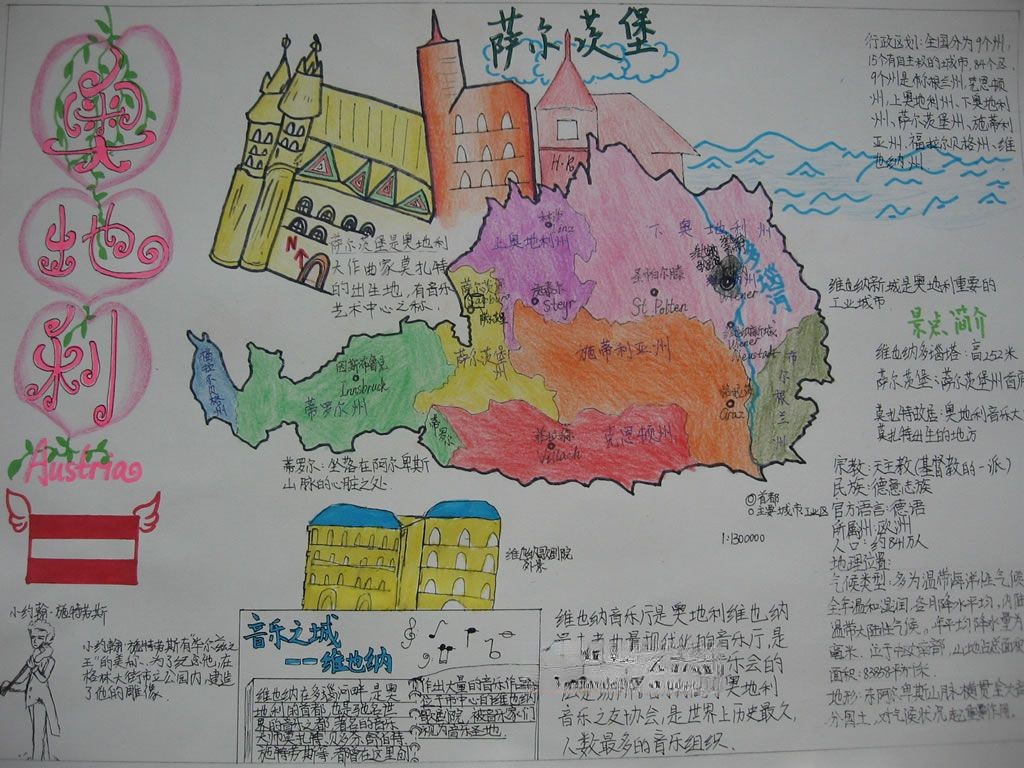 奥
地
利
Austria
萨尔茨堡
行政区划:全国分为9个州,
15个有自主权的城市,84个区.
9个州是布尔根兰州、克恩顿
州、上奥地利州、下奥地利
州、萨尔茨堡州、施蒂利
亚州、福拉尔贝格州、维
也纳州
H·R
N
萨尔茨堡是奥地利
大作曲家莫扎特
的出生地,有音乐
艺术中心之称.
上奥地利州
Linz
Steyr
下奥地利州
圣帕尔滕
St Polten
多瑙河
Wiener
Neustadt
萨尔茨堡州
施蒂利亚州
Graz
因斯布鲁克
Innsbruck
蒂罗尔州
蒂罗尔
克恩顿州
Villach
尔根兰州
蒂罗尔:坐落在阿尔卑斯
山脉的心脏之处.
◎首都
○主要城市工业区
1:1300000
维也纳新城是奥地利重要的
工业城市
景点简介
维也纳多瑙塔:高252米
萨尔茨堡:萨尔茨堡州首府
莫扎特故居:奥地利音乐大
莫扎特出生的地方
宗教:天主教(基督教的一派)
民族:德意志族
官方语言:德语
所属州:欧洲
人口:约841万人
地理位置:
气候类型:多为温带海洋性气候
全年温和湿润,各月降水平均,内陆
温带大陆性气候。年平均降水量为
毫米.
面积:83858平方千米
地形:东阿尔卑斯山脉横贯全大部
分国土,对气候状况起重要作用。
维也纳歌剧院
外景
小约翰·施特劳斯
小约翰·施特劳斯有“华尔兹之
王”的美称.为了纪念他,在
格林大街市立公园内,建造
了他的雕像.
音乐之城
——维也纳
维也纳在多瑙河畔,是奥
地利的首都,也是驰名世
界的音乐之都,著名的音乐
大师莫扎特、贝多芬、舒伯特
施特劳斯等,都曾在这里创
作出大量的音乐作品.
位于市中心的维也纳
歌剧院,被音乐家们
视为音乐圣地.
维也纳音乐厅是奥地利维也纳
最古老也最现代化的音乐厅,是
乐会的
奥地利
音乐之友协会,是世界上历史最久,
人数最多的音乐组织.